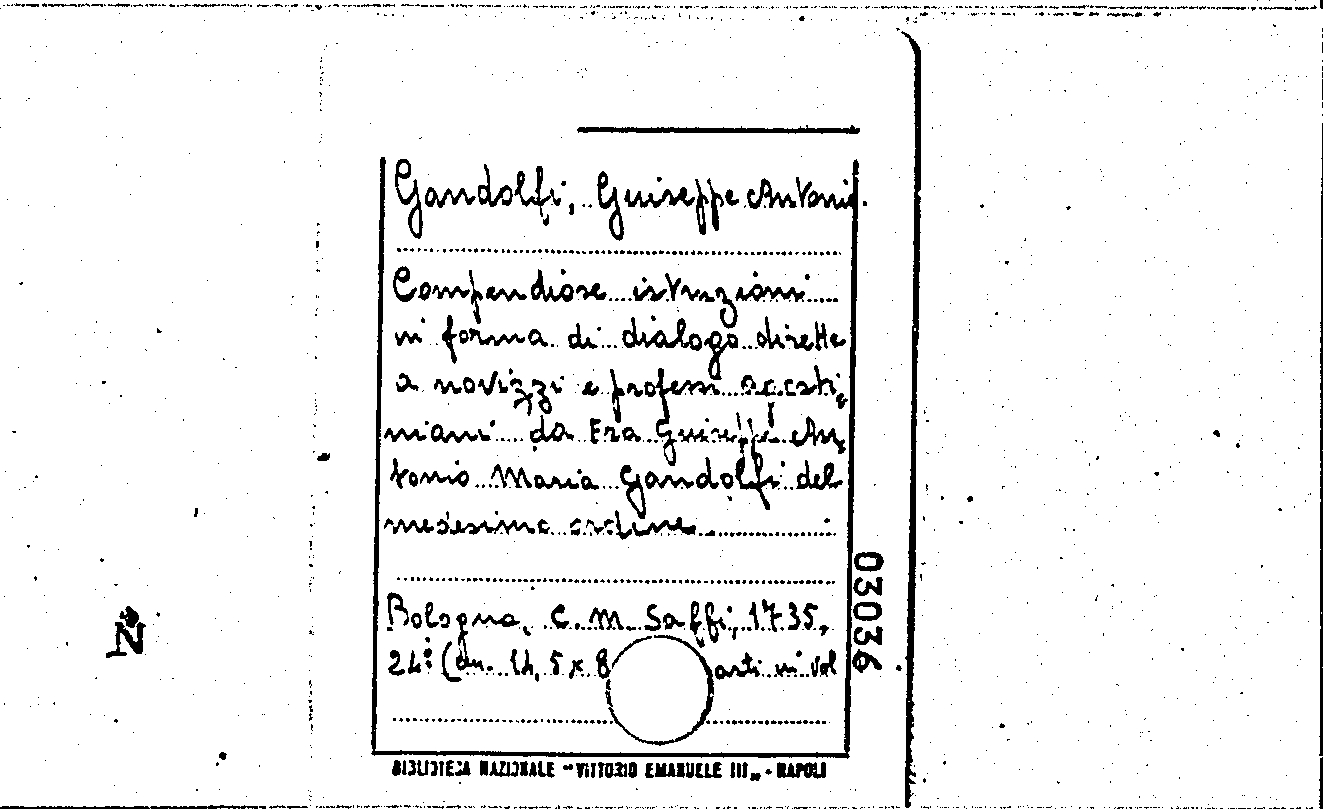 Gandolfi, Giuseppe Antonio.
Compendiose istruzioni
in forma di dialogo dirette
a novizzi e professi agosti=
niani da Fra Giuseppe An=
tonio Maria Gandolfi del
medesimo ordine
Bologna, C. M. Saffi, 1735,
24° (cm. 14,5 x 8 arti in vol
03036
N°
BIBLIOTECA NAZIONALE "VITTORIO EMANUELE III„ - NAPOLI